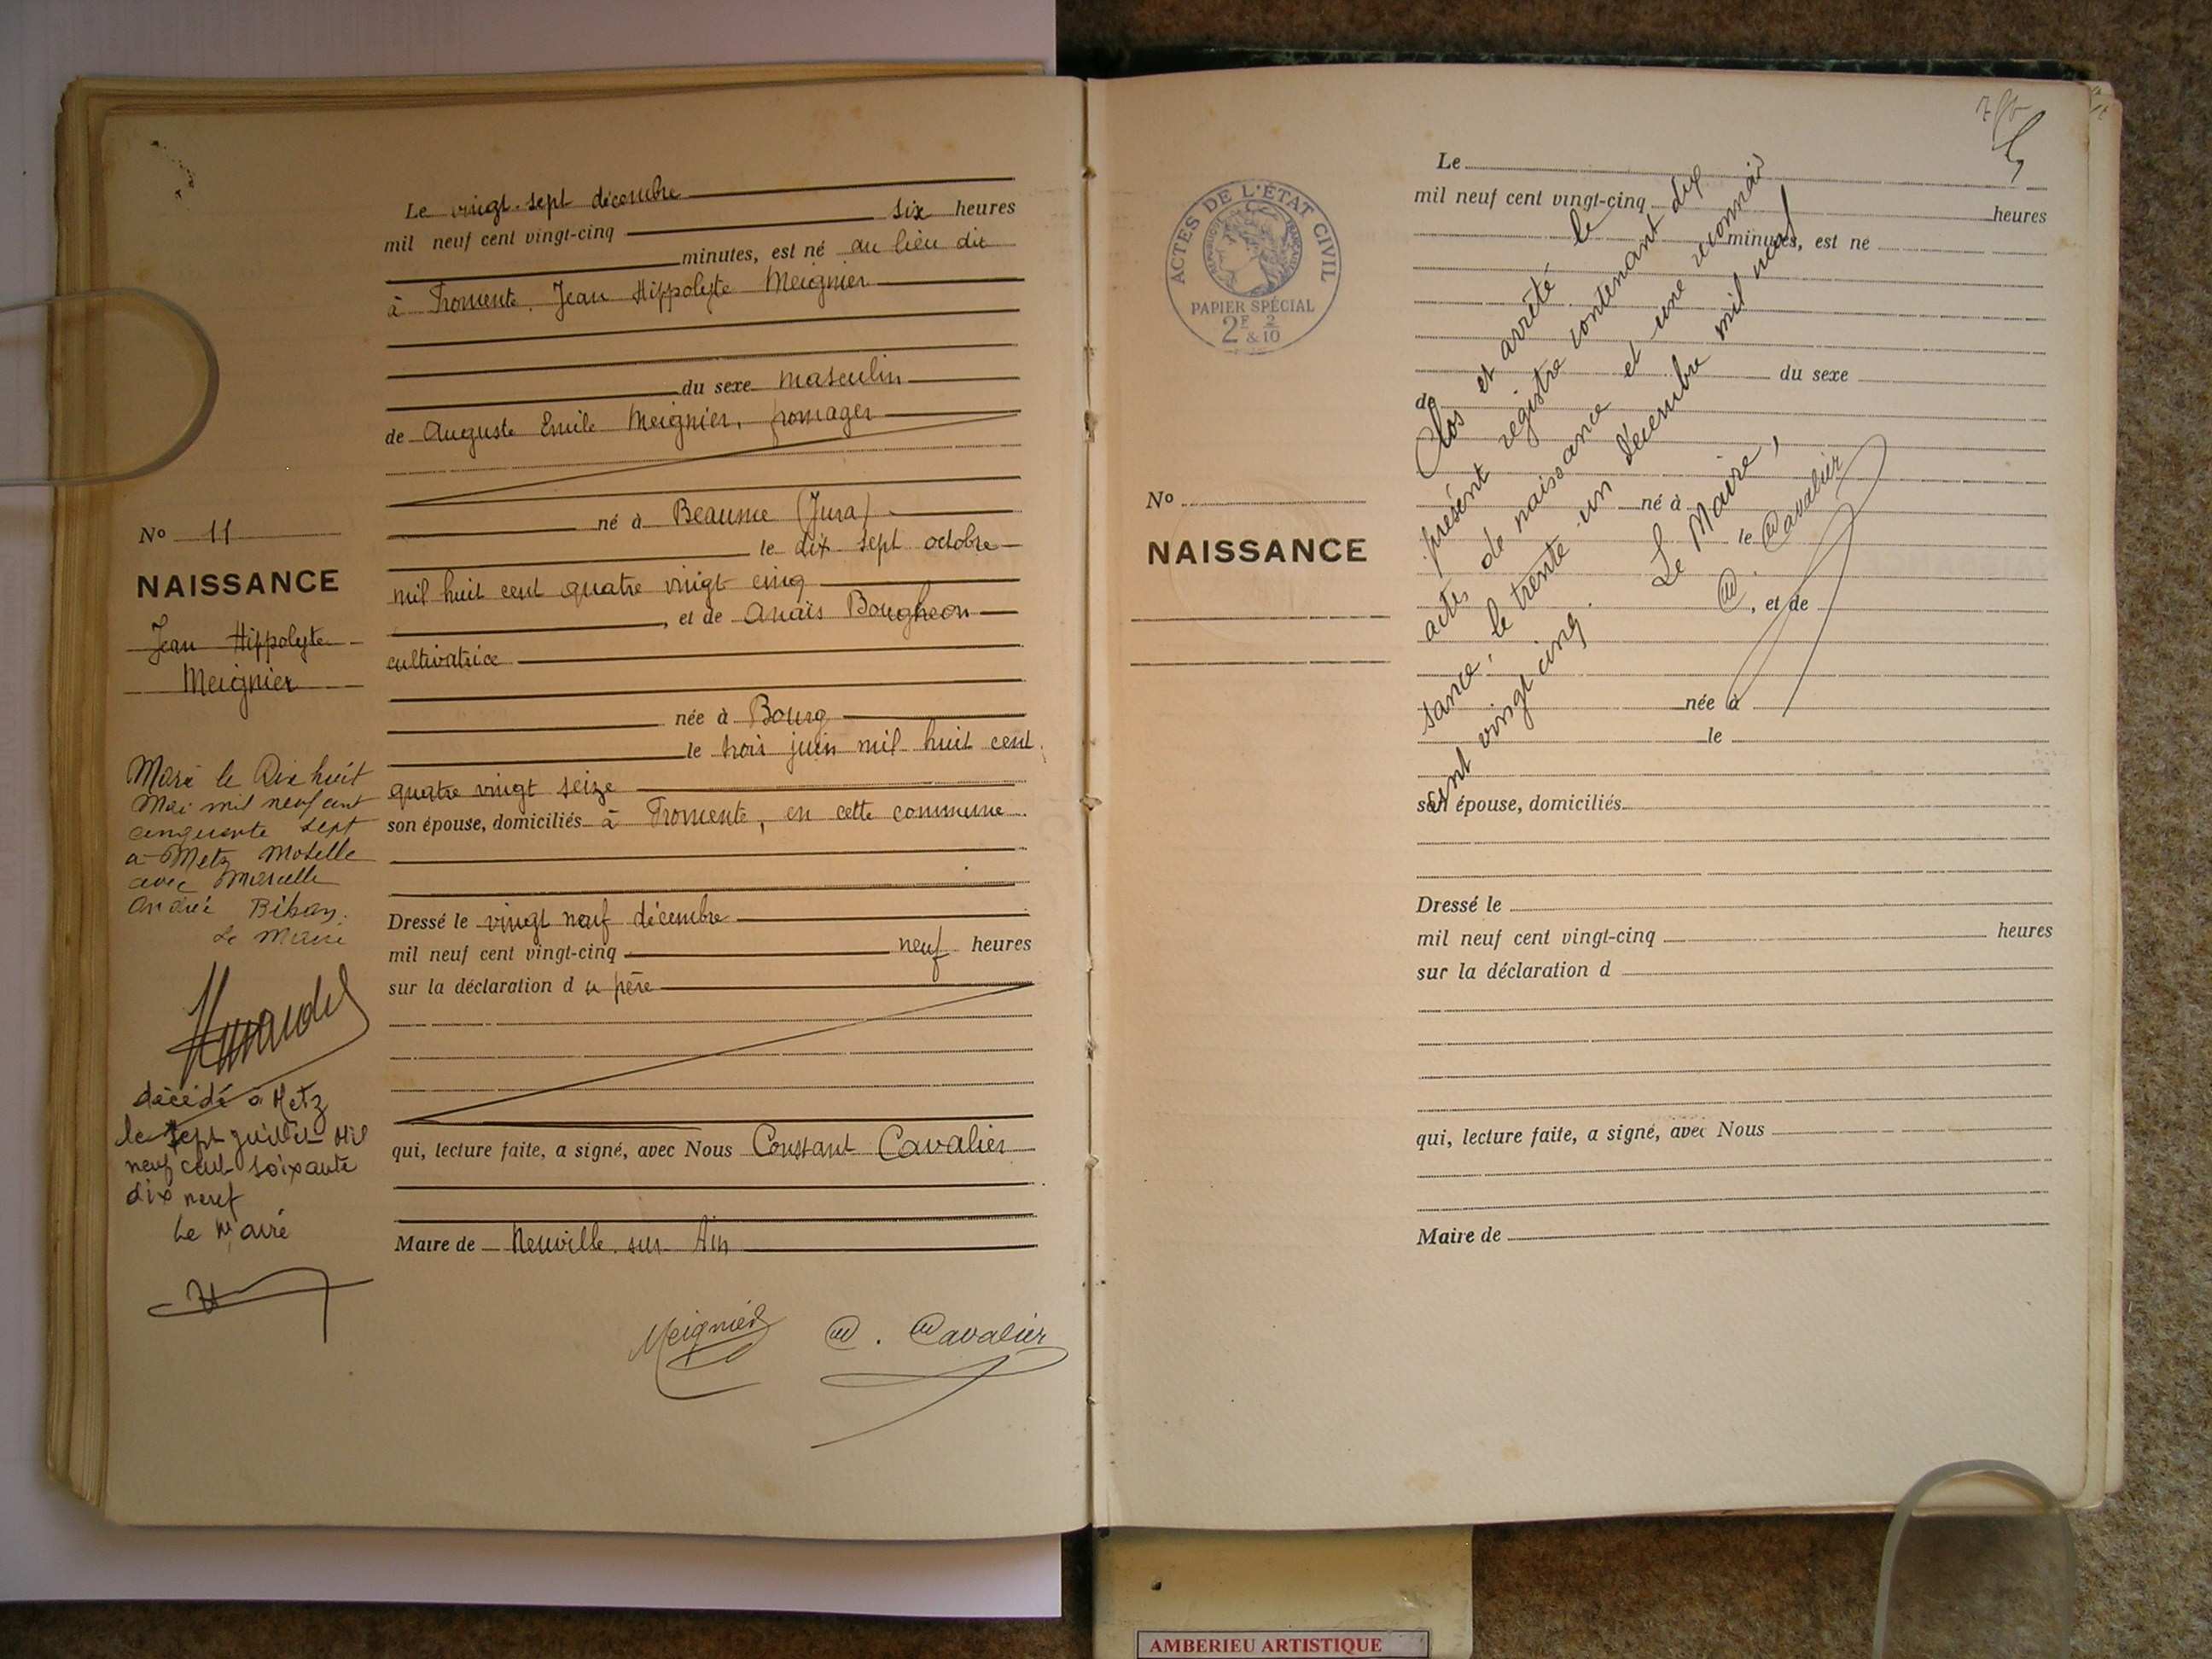 Le vingt-sept décembre
mil neuf cent vingt-cinq six heures
minutes, est né au lieu dit
à Fromente, Jean Hippolyte Meignier
du sexe masculin
de Auguste Emile Meignier, fromager
né à Beaume (Jura)
le dix sept octobre
mil huit cent quatre vingt cinq
, et de Anaïs Boughéon
cultivatrice
née à Bourg
le trois juin mil huit cent
quatre vingt seize
son épouse, domiciliés à Fromente, en cette commune
Dressé le vingt neuf décembre
mil neuf cent vingt-cinq neuf heures
sur la déclaration d u père
qui, lecture faite, a signé, avec Nous Constant Cavalier
Maire de Neuville sur Ain
Meignier C. Cavalier
No 11
NAISSANCE
Jean Hippolyte
Meignier
Marié le Dix huit
Mai mil neuf cent
cinquante sept
a Metz Moselle
avec Marcelle
Andrée
Le Maire
décédé a Metz
le sept juillet Mil
neuf cent soixante
dix neuf
Le Maire
ACTES DE L'ÉTAT CIVIL
RÉPUBLIQUE FRANÇAISE
PAPIER SPÉCIAL
2F 2
& 10
No
NAISSANCE
Le
mil neuf cent vingt-cinq heures
minutes, est né
du sexe
de
né à
le
, et de
née à
le
son épouse, domiciliés
Dressé le
mil neuf cent vingt-cinq heures
sur la déclaration d
qui, lecture faite, a signé, avec Nous
Maire de
Clos et arrêté le
présent registre contenant dix
actes de naissance et une reconnais
sance, le trente un décembre mil neuf
cent vingt cinq.
Le Maire,
C. Cavalier
AMBERIEU ARTISTIQUE